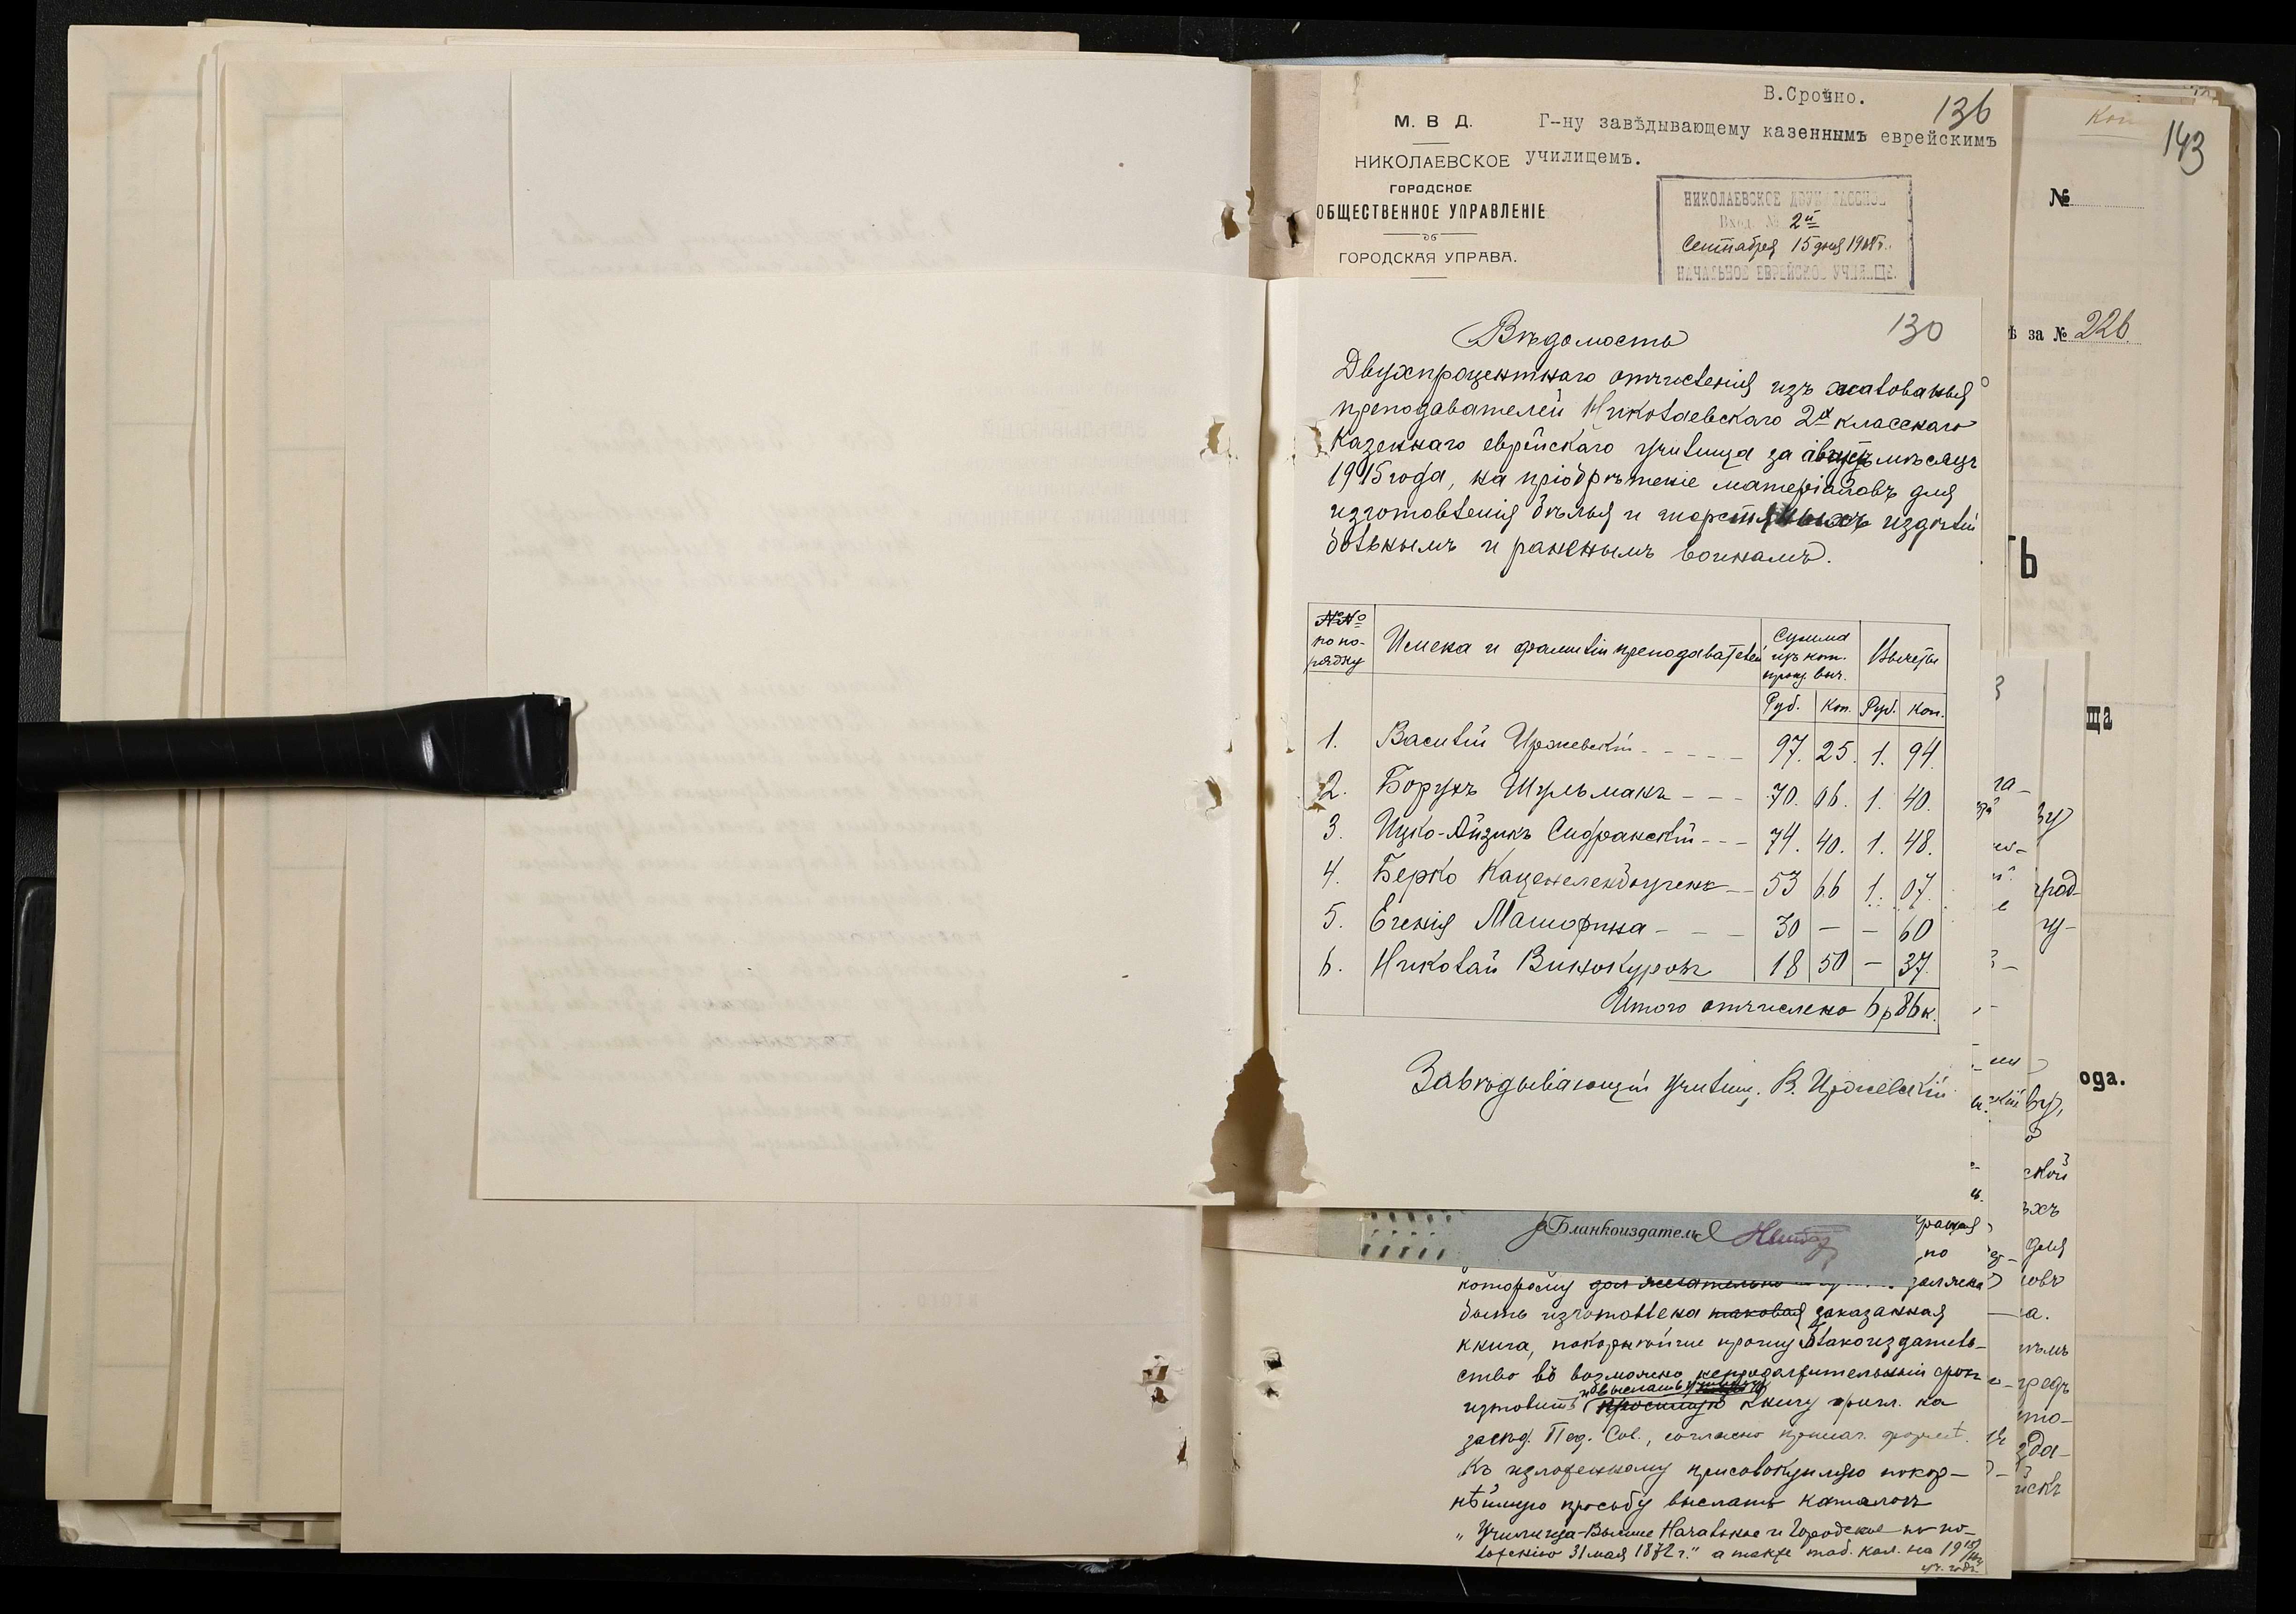 В.Срочно.
136
Г-ну завѣдывающему казеннымъ еврейскимъ
училищемъ.
М. В Д.
НИКОЛАЕВСКОЕ
ГОРОДСКОЕ
ОБЩЕСТВЕННОЕ УПРАВЛЕНІЕ
ГОРОДСКАЯ УПРАВА.
НИКОЛАЕВСКОЕ ДВУКЛАССНОЕ
Вход. № 2й
Сентября 15 дня 1915г.
НАЧАЛЬНОЕ ЕВРЕЙСКОЕ УЧИЛИЩЕ.
130
Вѣдомость
Двухпроцентнаго отчисленія изъ жалованья
преподавателей Николаевскаго 2х класснаго
Казеннаго еврейскаго училища за августъ мѣсяцъ
1915 года, на пріобрѣтеніе матеріаловъ для
изготовленія бѣлья и шерстяныхъ издѣлій
больнымъ и раненымъ воинамъ.
№№ по по-рядку
Имена и фамиліи преподавателей
Сумма изъ кот. произ. выч.
Вычеты
Руб. Коп. Руб. Коп.
1. Василій Иржевскій 97. 25. 1. 94.
2. Борухъ Шульманъ 70. 06. 1. 40.
3. Ицко-Айзикъ Сифранскій 74. 40. 1. 48.
4. Берко Каценеленбоугенъ 53 66 1. 07.
5. Евгенія Машорина 30 — — 60
6. Николай Винокуровъ 18 50 — 37.
Итого отчислено 6р 86к.
Завѣдывающій училищ. В. Иржевскій
Бланкоиздатель
по
которому должна
быть изготовлена таковая заказанная
книга, покорнѣйше прошу Бланкоиздатель-
ство въ возможно непродолжительный срокъ
изготовить и выслать книгу прот. на
засѣд. Пед. Сов., согласно прилаг. формѣ.
Къ изложенному присовокупляю покор-
нѣйшую просьбу выслать каталогъ
„Училища-Высшие Начальные и Городские по по-
ложенію 31 мая 1872 г." а также таб. кал. на 1915/
143
№
за № 226.
ть
ща
ода.